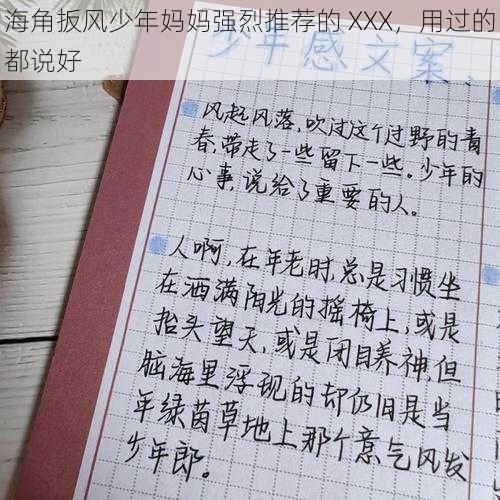 海角扳风少年妈妈强烈推荐的 XXX，用过的
都说好
少年感文案
风起风落,吹过这个过野的青
春,带走了一些留下一些。少年的
心事,说给了重要的人。
人啊,在年老时,总是习惯坐
在洒满阳光的摇椅上,或是
抬头望天,或是闭目养神,但
脑海里浮现的却仍旧是当
年绿茵草地上那个意气风发
少年郎。